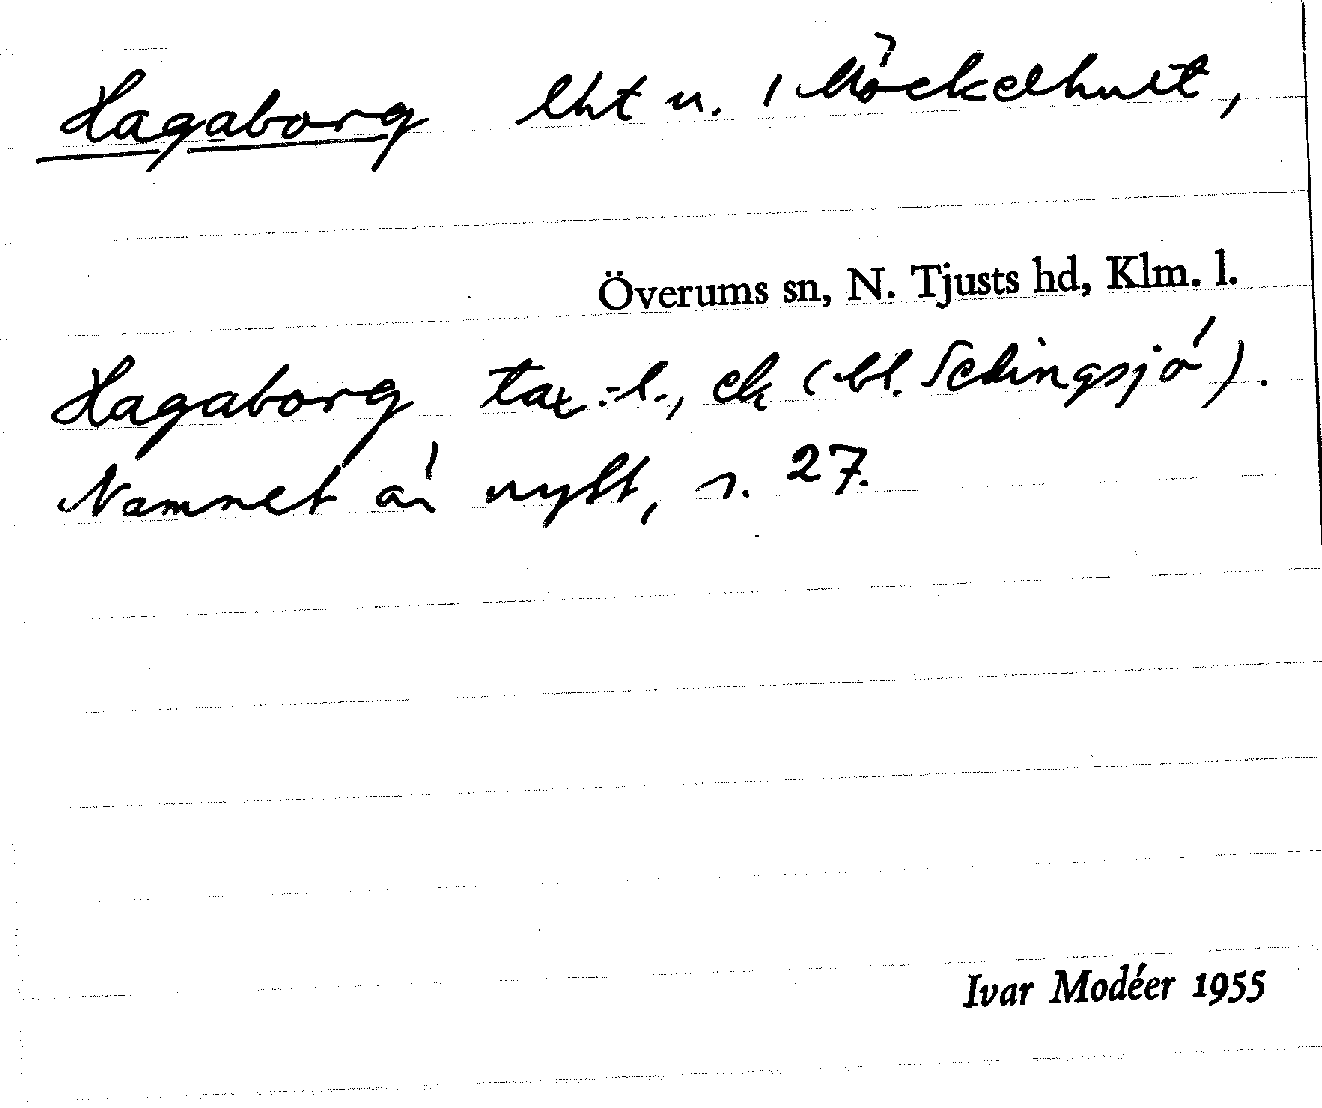 Hagaborg lht u. 1 Möckelhult,
Överums sn, N. Tjusts hd, Klm. l.
Hagaborg tax.-l., ek (bl. Selingsjö).
Namnet är nytt, s. 27.
Ivar Modéer 1955